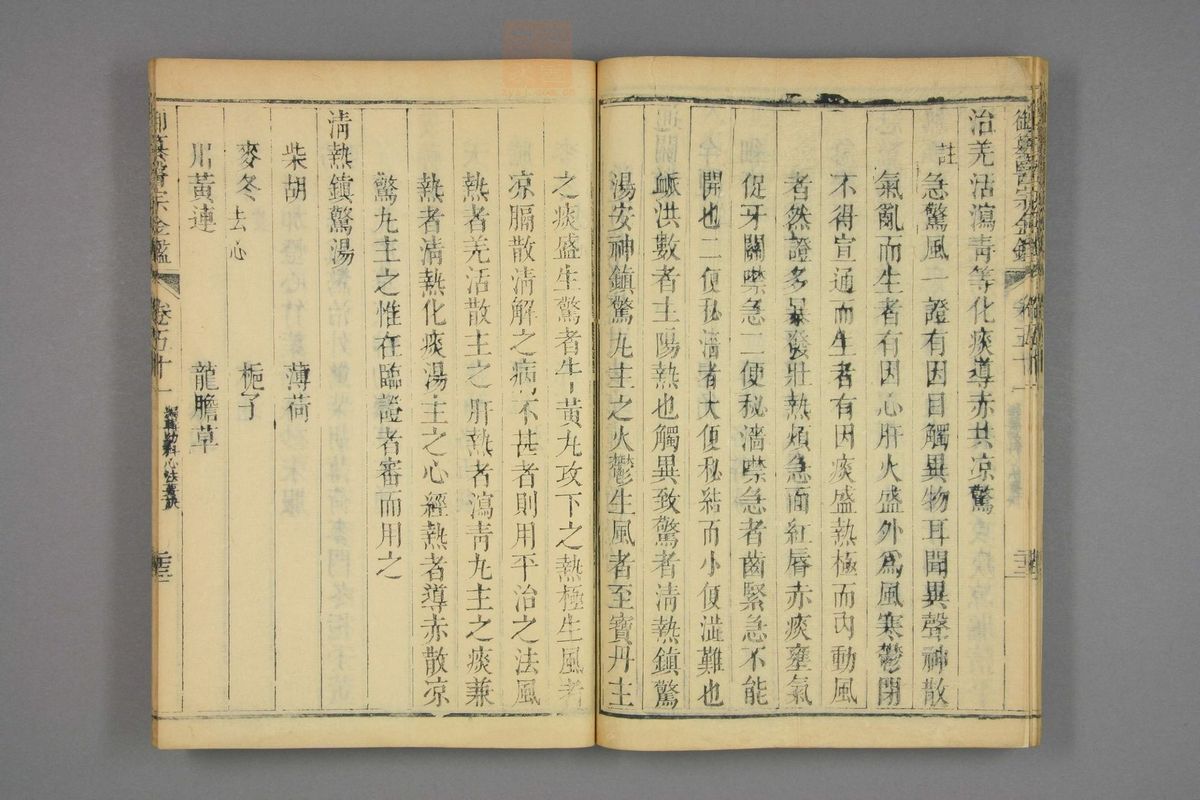 治羌活瀉青等化痰導赤共凉驚
註
急驚風一證有因目觸異物耳聞異聲神散
氣亂而生者有因心肝火盛外爲風寒鬱閉
不得宣通而生者有因痰盛熱極而內動風
者然證多暴發壯熱煩急面紅脣赤痰壅氣
促牙關噤急二便秘濇噤急者齒緊急不能
開也二便秘濇者大便秘結而小便澁難也
脈洪數者主陽熱也觸異致驚者淸熱鎮驚
湯安神鎮驚丸主之火鬱生風者至寶丹主
之痰盛生驚者牛黃丸攻下之熱極生風者
凉膈散淸解之病不甚者則用平治之法風
熱者羌活散主之肝熱者瀉靑丸主之痰兼
熱者淸熱化痰湯主之心經熱者導赤散凉
驚丸主之惟在臨證者審而用之
淸熱鎮驚湯
柴胡 薄荷
麥冬去心 梔子
川黃連 龍膽草
御纂醫宗金鑑 卷五十一 編輯幼科心法要訣 二十三